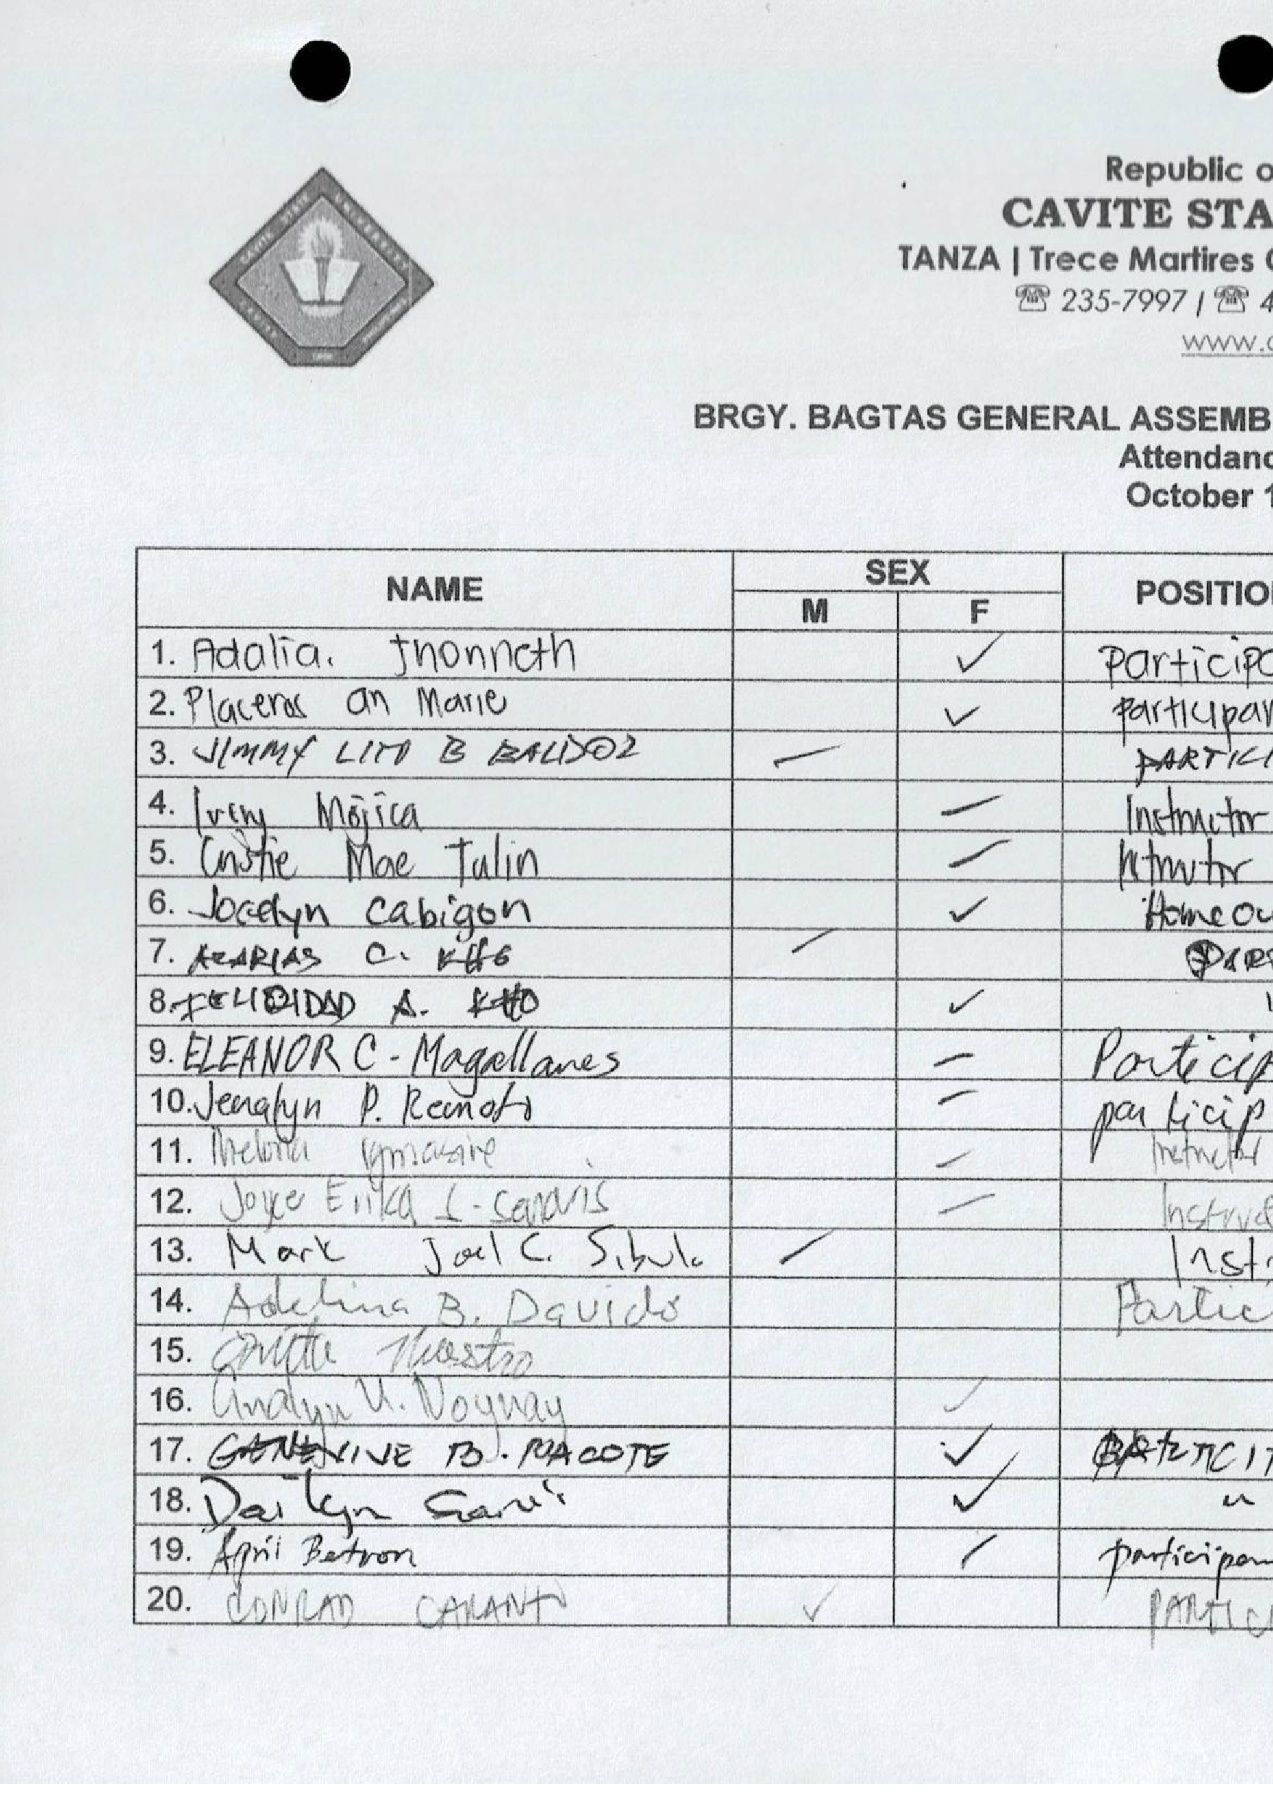 Republic o
CAVITE STA
TANZA | Trece Martires C
☎ 235-7997 | ☎ 4
www.c
BRGY. BAGTAS GENERAL ASSEMB
Attendanc
October 1
NAME SEX POSITIO
M F
1. Adalia. Jhonneth ✓ participa
2. Placeros an Marie ✓ participan
3. JIMMY LITO B BALIDOZ — PARTICI
4. Iveny Mojica — Instructor
5. Cristie Mae Tulin — Intructor
6. Jocelyn Cabigon ✓ Homeow
7. AZARIAS C. KHO —
8. FELICIDAD A. KHO ✓
9. ELEANOR C - Magallanes — Particip
10. Jenalyn P. Remoto — particip
11. — Instructor
12. Joyce Erika — Instruc
13. Mark Joel C. Sibulo — Inst
14. Adelina B. Davido Partic
15. Maestro
16. Analyn U. Noynay ✓
17. GENEVIVE B. MACOTE ✓ PARTICI
18. Dailyn ✓ "
19. April Betron ✓ participan
20. CONRAD CARANTO ✓ PARTIC